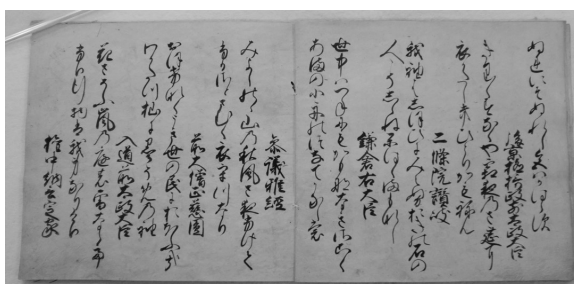 ぬれにそぬれし色はかはらす
後京極摂政前太政大臣
きり〳〵すなくや霜夜のさ莚に
衣かたしきひとりかも祢ん
二條院讃岐
我袖ハしほひにみえぬおきの石の
人こそしらねかはくまもなし
鎌倉右大臣
世中ハつねにもかもななきさこく
あまの小舟のつなてかなしも
参議雅経
みよしのゝ山の秋風さ夜ふけて
ふるさとさむく衣うつなり
前大僧正慈圓
おほけなくうき世の民におほふかな
わかたつ杣に墨そめの袖
入道前太政大臣
花さそふ嵐の庭の雪ならて
ふり行ものハ我身なりけり
権中納言定家